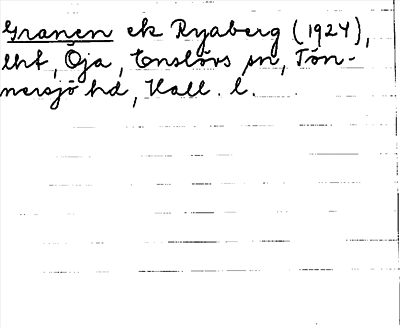 Granen ek Ryaberg (1924),
lht, Öja, Enslövs sn, Tön-
nersjö hd, Hall. l.